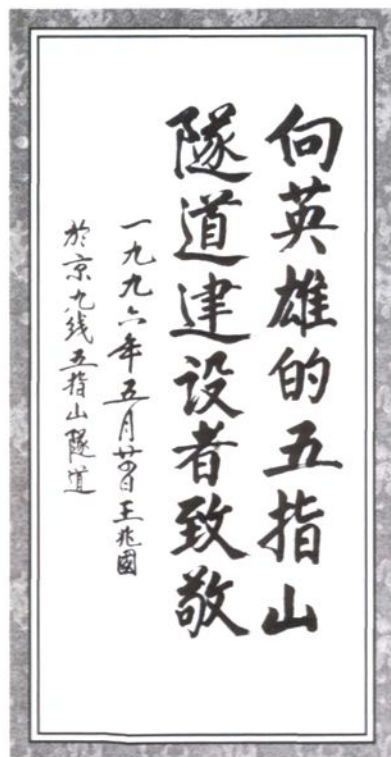 向英雄的五指山
隧道建设者致敬
一九九六年五月廿日王兆國
於京九线五指山隧道